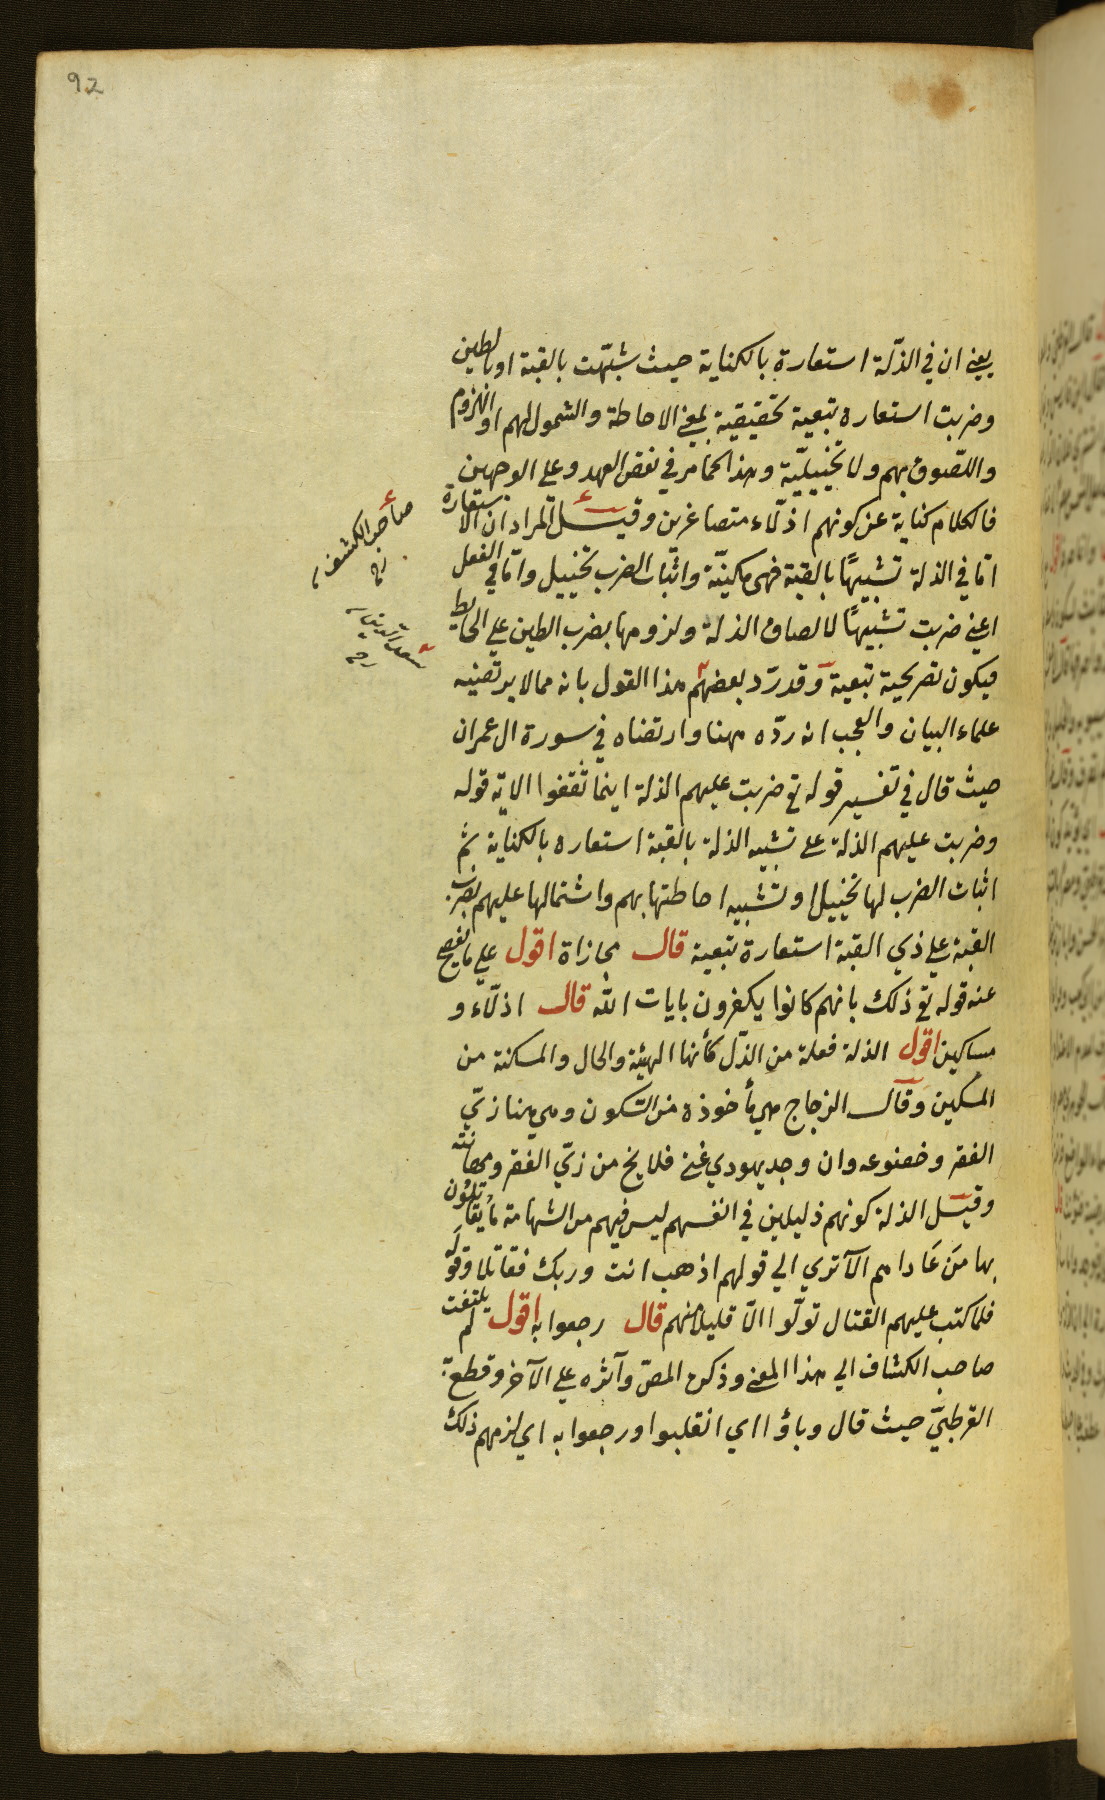 92
يعني ان في الذلّة استعارة بالكناية حيث شبّهت بالقبة او بالطين
وضربت استعاره تبعية تحقيقية بمعني الاحاطة والشمول لهم او اللزوم
واللّصوق بهم ولا تخييليّة وهذا كما مر في نقض العهد وعلي الوجهين
فالكلام كناية عن كونهم اذلّاء متصاغرين وقيل المراد ان الاستعارة
امّا في الذلة تشبيهًا بالقبة فهى مكنيّة واثبات الضرب تخييل وامّا في الفعل
اعني ضربت تشبيهًا لالصاق الذلة ولزومها بضرب الطين علي الحايط
فيكون تصريحية تبعية وقد ردّ بعضهم هذا القول بانه ممالا يرتضيه
علماء البيان والعجب انه ردّه ههنا وارتضاه في سورة ال عمران
حيث قال في تفسير قوله تع ضربت عليهم الذلة اينما ثقفوا الاية قوله
وضربت عليهم الذلة علي تشبيه الذلة بالقبة استعاره بالكناية ثم
اثبات الضرب لها تخييل او تشبيه احاطتها بهم واشتمالها عليهم بضرب
القبة علي ذي القبة استعارة تبعية قال مجازاة اقول علي ما يفصح
عنه قوله تع ذلك بانهم كانوا يكفرون بايات الله قال اذلّاء و
مساكين اقول الذلة فعلة من الذّل كأنها الهيئة والحال والمسكنة من
المسكين وقال الزجاج هي مأخوذه من السّكون وهي هنا زيّ
الفقر وخضوعه وان وجد يهودي غني فلا يخ من زيّ الفقر ومهانته
وقيل الذلة كونهم ذليلين في انفسهم ليس فيهم من الشهامة ما يقاتلون
بها مَن عَاداهم الا تري الي قولهم اذهب انت وربك فقاتلا وقوله
فلما كتب عليهم القتال تولّوا الّا قليلا منهم قال رجعوا به اقول لم يلتفت
صاحب الكشاف الي هذا المعني وذكره المص وآثره علي الآخر وقطع به
القرطبيّ حيث قال وباؤا اي انقلبوا ورجعوا به اي لزمهم ذلك
صاحب الكشف
رح
سعد الدين
رحه